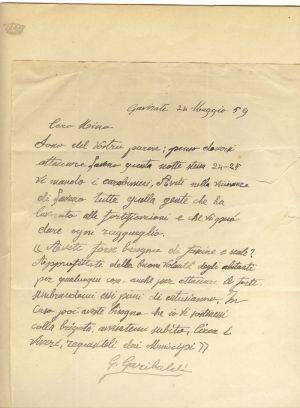 Gavirate 24 Maggio 59
Caro Mino
Sono del vostro parere; penso doversi
attaccare Laveno questa notte stessa 24-25
Vi mando i carabinieri, Avete nella vicinanza
di Laveno tutta quella gente che ha
lavorato alle fortificazioni e che vi può
dare ogni ragguaglio.
Avete forse bisogno di farine e sale?
Approfittate della buona volontà degli abitanti
per qualunque cosa anche per attaccare il forte.
essi pieni di entusiasmo. In
caso poi aveste bisogno che io vi sostenessi
colla brigata, avvisatemi subito, Circa i
viveri, requisiteli dai Municipi"
G. Garibaldi